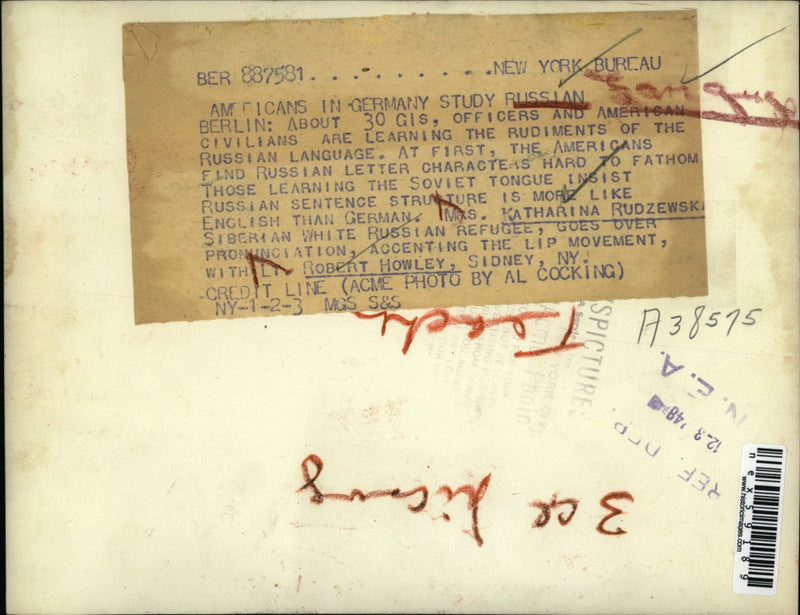 BER 887581. . . . . . . . . . .NEW YORK BUREAU
AMERICANS IN GERMANY STUDY RUSSIAN
BERLIN: ABOUT 30 GIS, OFFICERS AND AMERICAN
CIVILIANS ARE LEARNING THE RUDIMENTS OF THE
RUSSIAN LANGUAGE. AT FIRST, THE AMERICANS
FIND RUSSIAN LETTER CHARACTERS HARD TO FATHOM
THOSE LEARNING THE SOVIET TONGUE INSIST
RUSSIAN SENTENCE STRUCTURE IS MORE LIKE
ENGLISH THAN GERMAN. MRS. KATHARINA RUDZEWSKA
SIBERIAN WHITE RUSSIAN REFUGEE, GOES OVER
PRONUNCIATION, ACCENTING THE LIP MOVEMENT,
WITH LT. ROBERT HOWLEY, SIDNEY, NY.
CREDIT LINE (ACME PHOTO BY AL COCKING)
NY-1-2-3 MGS S&S
Language
Teach
A38575
N.E.A.
12-3 '48
REF. DEP.
3 col
www.historicimages.com
nex59189